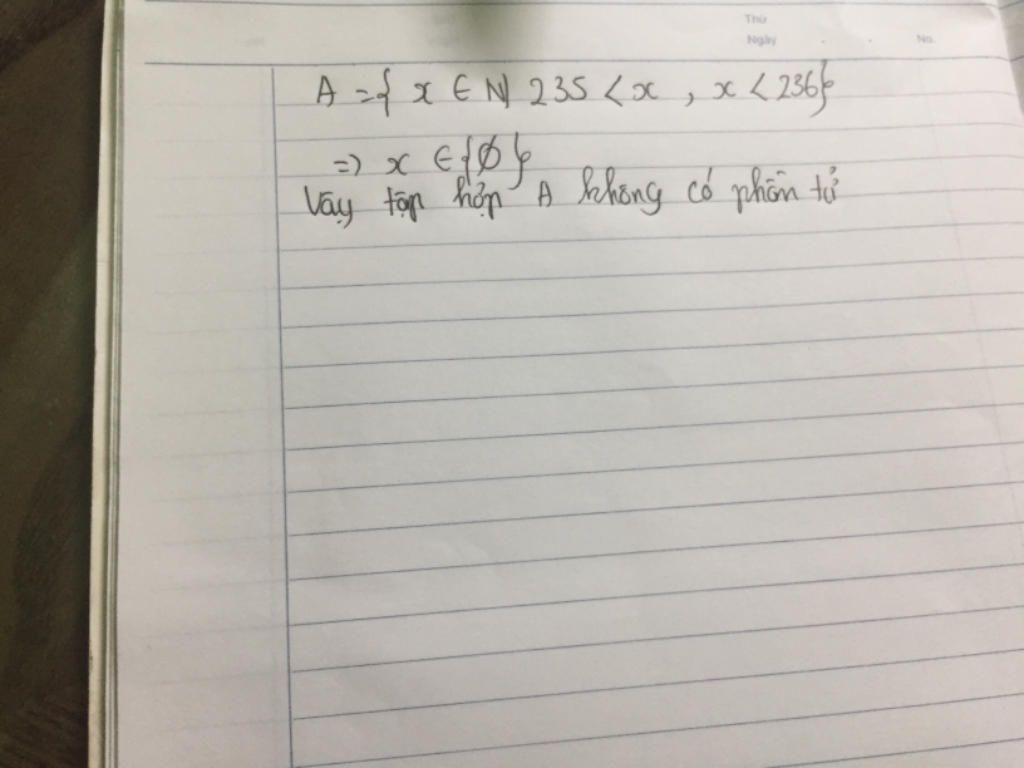 Thứ
Ngày . . No.
A = { x ∈ N| 235 < x , x < 236}
=> x ∈ {Ø}
Vậy tập hợp A không có phần tử